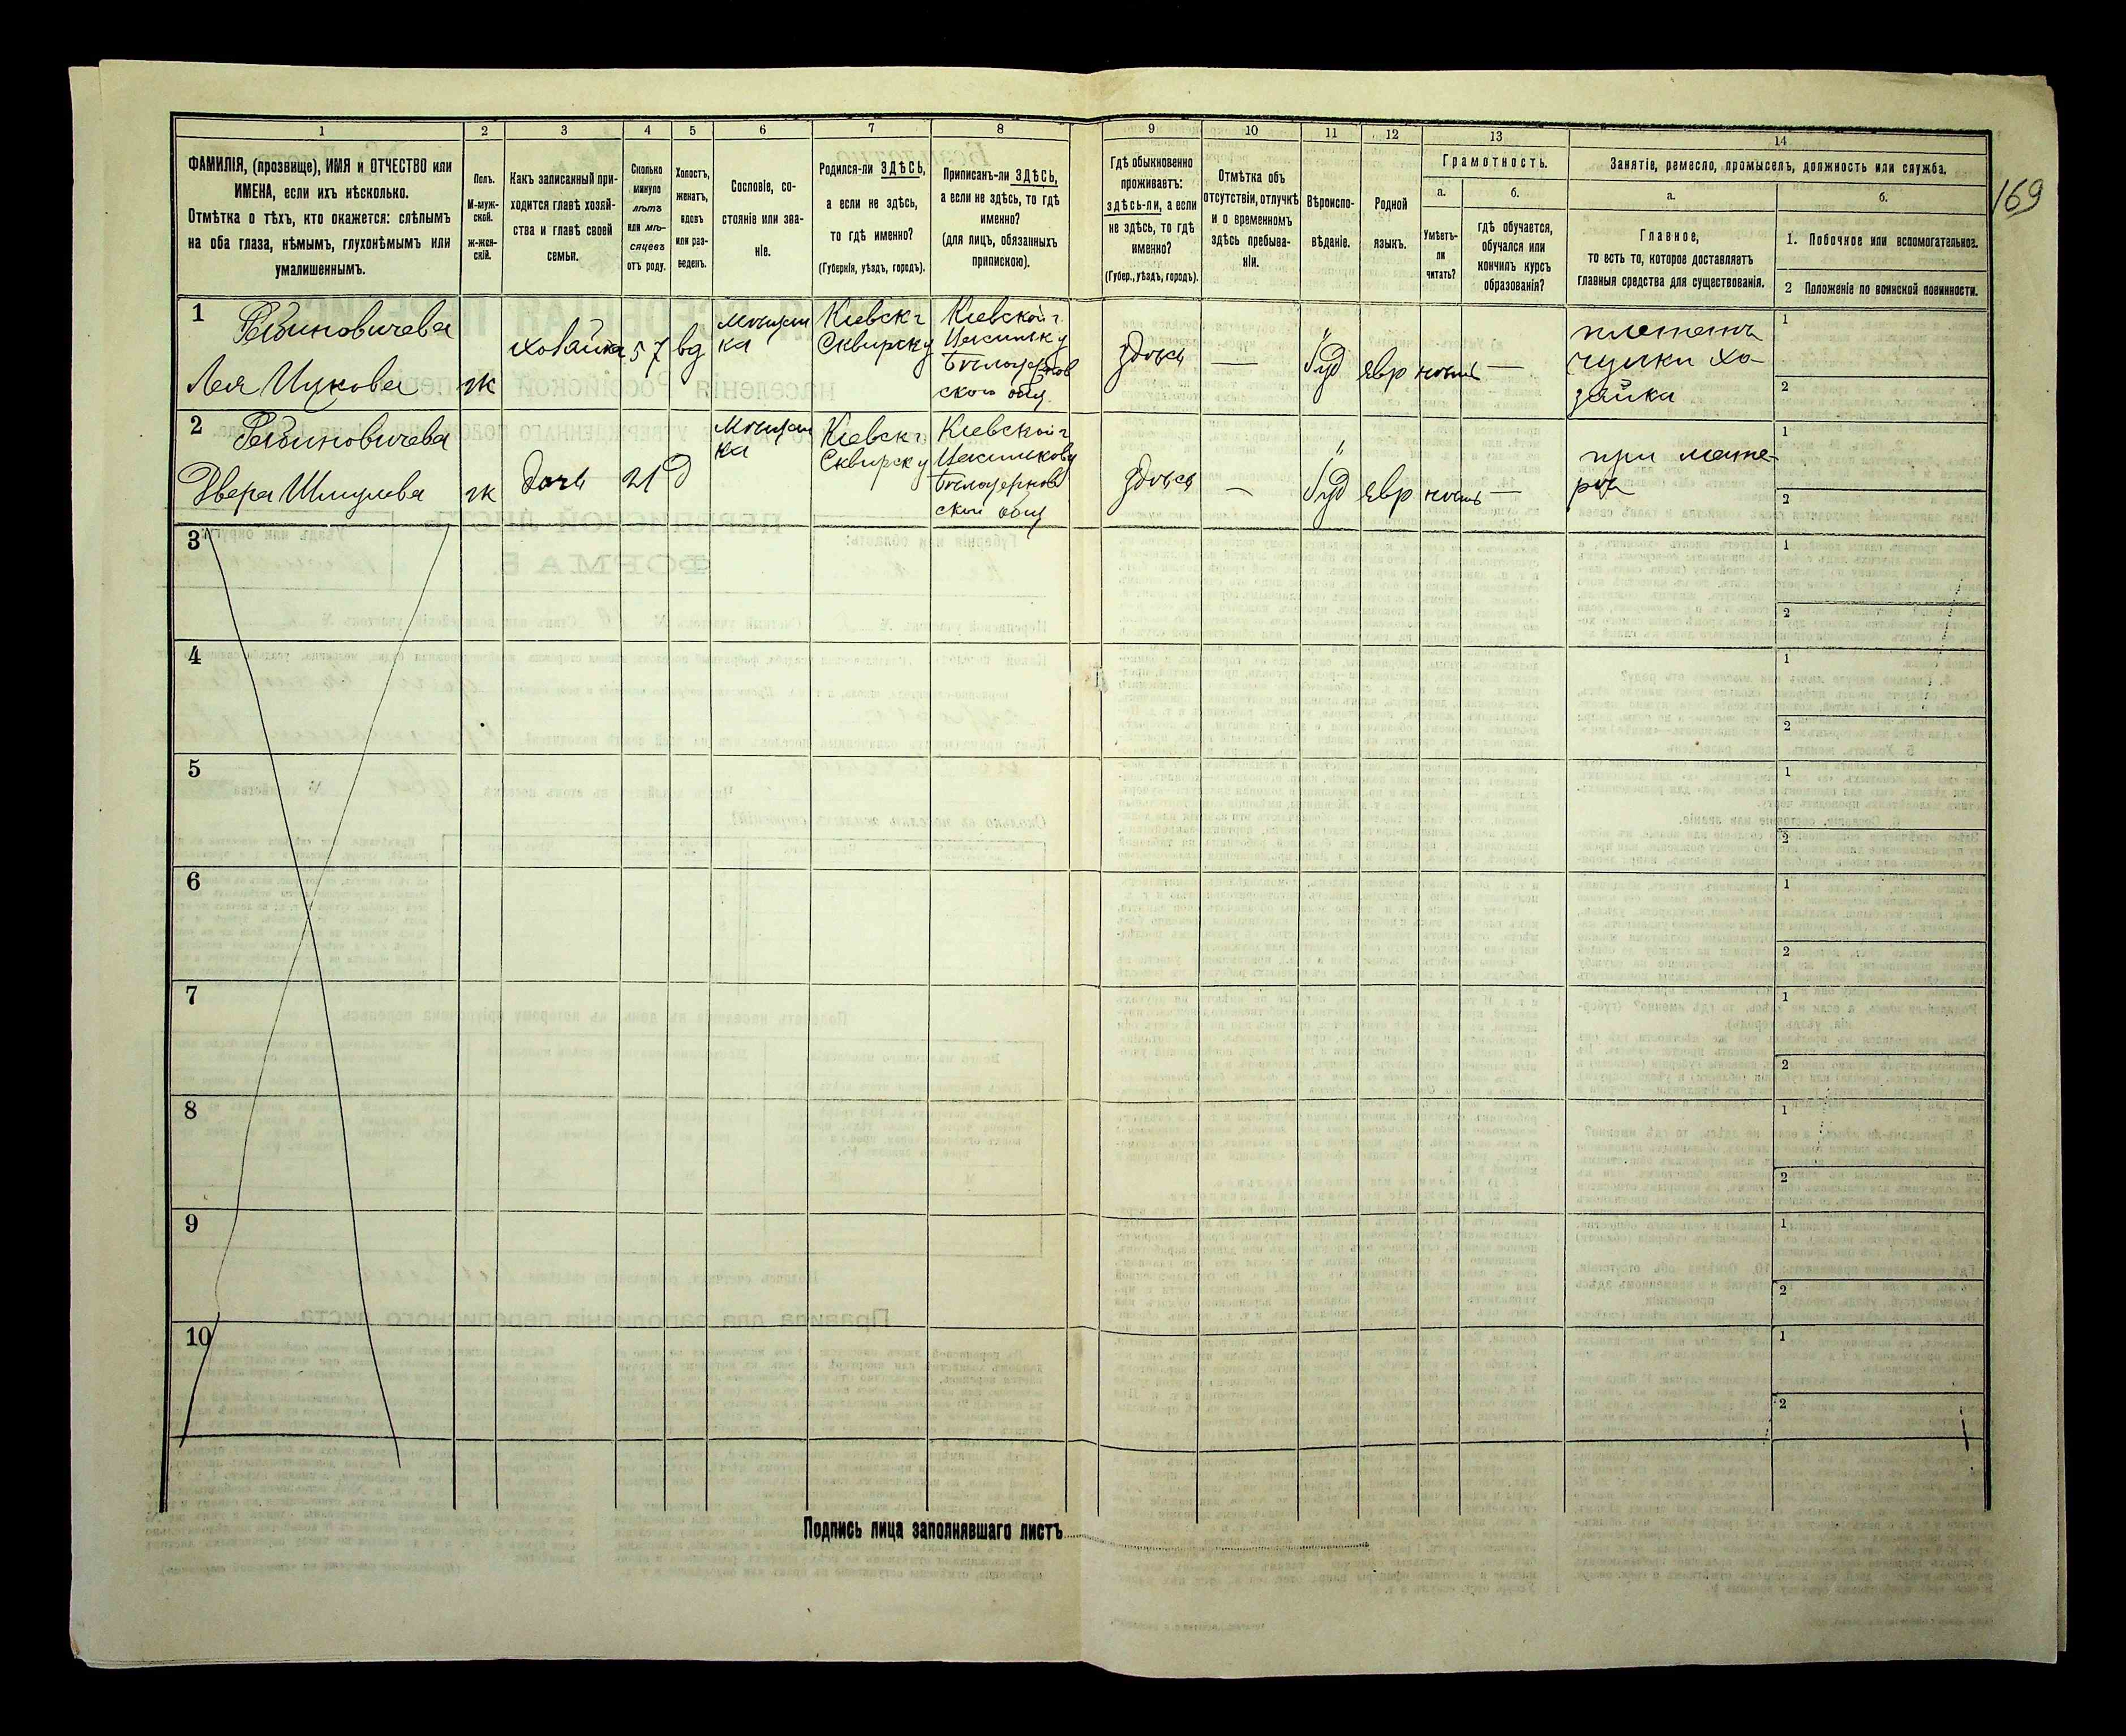 169
1
2
3
4
5
6
7
8
9
10
11
12
13
14
ФАМИЛІЯ, (прозвище), ИМЯ и ОТЧЕСТВО или
ИМЕНА, если ихъ нѣсколько.
Отмѣтка о тѣхъ, кто окажется: слѣпымъ
на оба глаза, нѣмымъ, глухонѣмымъ или
умалишеннымъ.
Полъ.
М-муж-
ской.
ж-жен-
скій.
Какъ записанный при-
ходится главѣ хозяй-
ства и главѣ своей
семьи.
Сколько
минуло
лѣтъ
или мѣ-
сяцевъ
отъ роду.
Холостъ,
женатъ,
вдовъ
или раз-
веденъ.
Сословіе, со-
стояніе или зва-
ніе.
Родился-ли ЗДѢСЬ,
а если не здѣсь,
то гдѣ именно?
(Губернія, уѣздъ, городъ).
Приписанъ-ли ЗДѢСЬ,
а если не здѣсь, то гдѣ
именно?
(для лицъ, обязанныхъ
припискою).
Гдѣ обыкновенно
проживаетъ:
здѣсь-ли, а если
не здѣсь, то гдѣ
именно?
(Губер., уѣздъ, городъ).
Отмѣтка объ
отсутствіи, отлучкѣ
и о временномъ
здѣсь пребыва-
ніи.
Вѣроиспо-
вѣданіе.
Родной
языкъ.
Грамотность.
а.
б.
Умѣетъ-
ли
читать?
гдѣ обучается,
обучался или
кончилъ курсъ
образованія?
Занятіе, ремесло, промыселъ, должность или служба.
а.
б.
Главное,
то есть то, которое доставляетъ
главныя средства для существованія.
1. Побочное или вспомогательное.
2 Положеніе по воинской повинности.
1
Рабиновичева
Лея Ицкова
ж
хозайка
57
вд
мѣщан
ка
Кіевск г
Сквирск у
Кіевской г.
Бѣлоцерков
ского общ
здѣсь
—
Іуд
евр
нѣтъ
—
плететъ
чулки хо-
зайка
1
2
2
Рабиновичева
Двера Шмулева
ж
дочь
21
д
мѣщан
ка
Кіевск г
Сквирск у
Кіевской г
Бѣлоцерков
ской общ
здѣсь
—
Іуд
евр
нѣтъ
—
при мате-
ри
1
2
3
1
2
4
1
2
5
1
2
6
1
2
7
1
2
8
1
2
9
1
2
10
1
2
Подпись лица заполнявшаго листъ